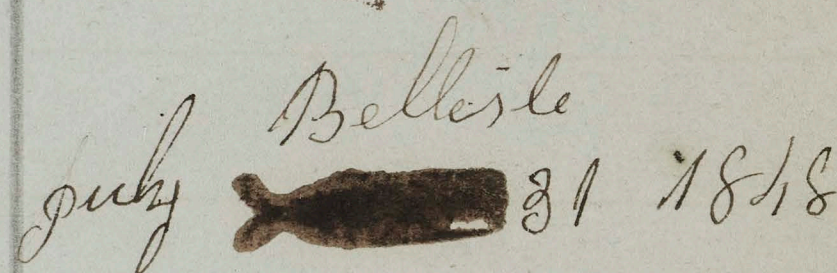 Bellisle
july 31 1848